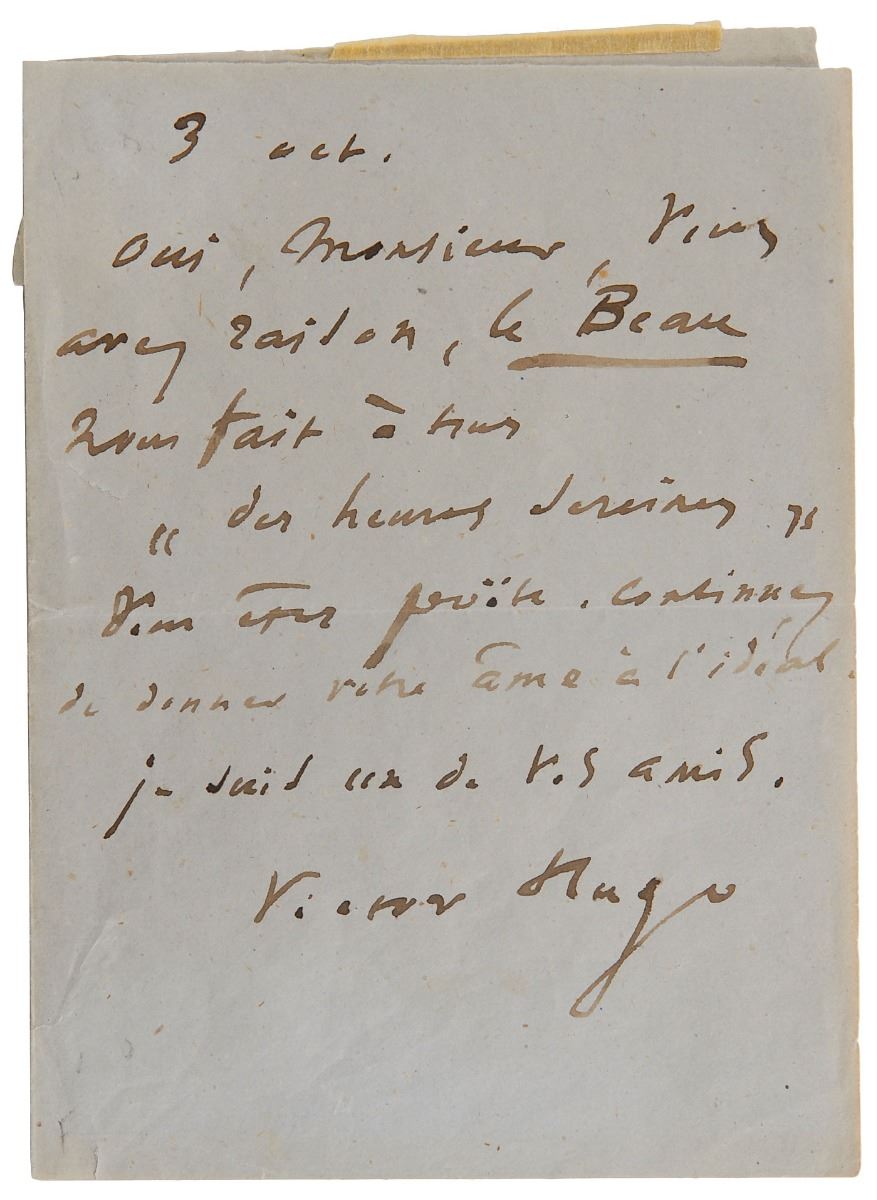 3 oct.
Oui, Monsieur, vous
avez raison, le Beau
nous fait à tous
" des heures sereines "
Vous êtes poëte. Continuez
de donner votre âme à l'idéal.
je suis un de vos amis.
Victor Hugo